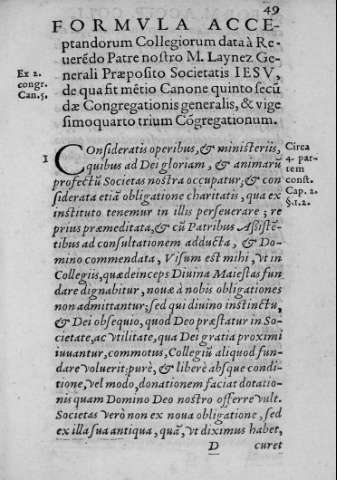 49
FORMVLA ACCE-
ptandorum Collegiorum data à Re-
uerédo Patre nostro M. Laynez Ge-
nerali Præposito Societatis IESV,
de qua fit métio Canone quinto secū
dæ Congregationis generalis, & vige
simoquarto trium Cōgregationum.
Ex 2.
congr.
Can. 5.
1
Consideratis operibus, & ministeriis,
quibus ad Dei gloriam, & animarū
profectū Societas nostra occupatur, & con
siderata etiā obligatione charitatis, qua ex
instituto tenemur in illis perseuerare; re
prius præmeditata, & cū Patribus Assistē-
tibus ad consultationem adducta, & Do-
mino commendata, Visum est mihi, vt in
Collegiis, quæ deinceps Diuina Maiestas fun
dare dignabitur, nouæ à nobis obligationes
non admittantur; sed qui diuino instinctu,
& Dei obsequio, quod Deo præstatur in So-
cietate, ac vtilitate, qua Dei gratia proximi
iuuantur, commotus, Collegiū aliquod fun-
dare voluerit: purè, & liberè absque condi-
tione, vel modo, donationem faciat dotatio-
nis quam Domino Deo nostro offerre vult.
Societas verò non ex noua obligatione, sed
ex illa sua antiqua, quā, vt diximus habet,
Circa
4. par-
tem
const.
Cap. 2.
§. 1. 2.
D curet